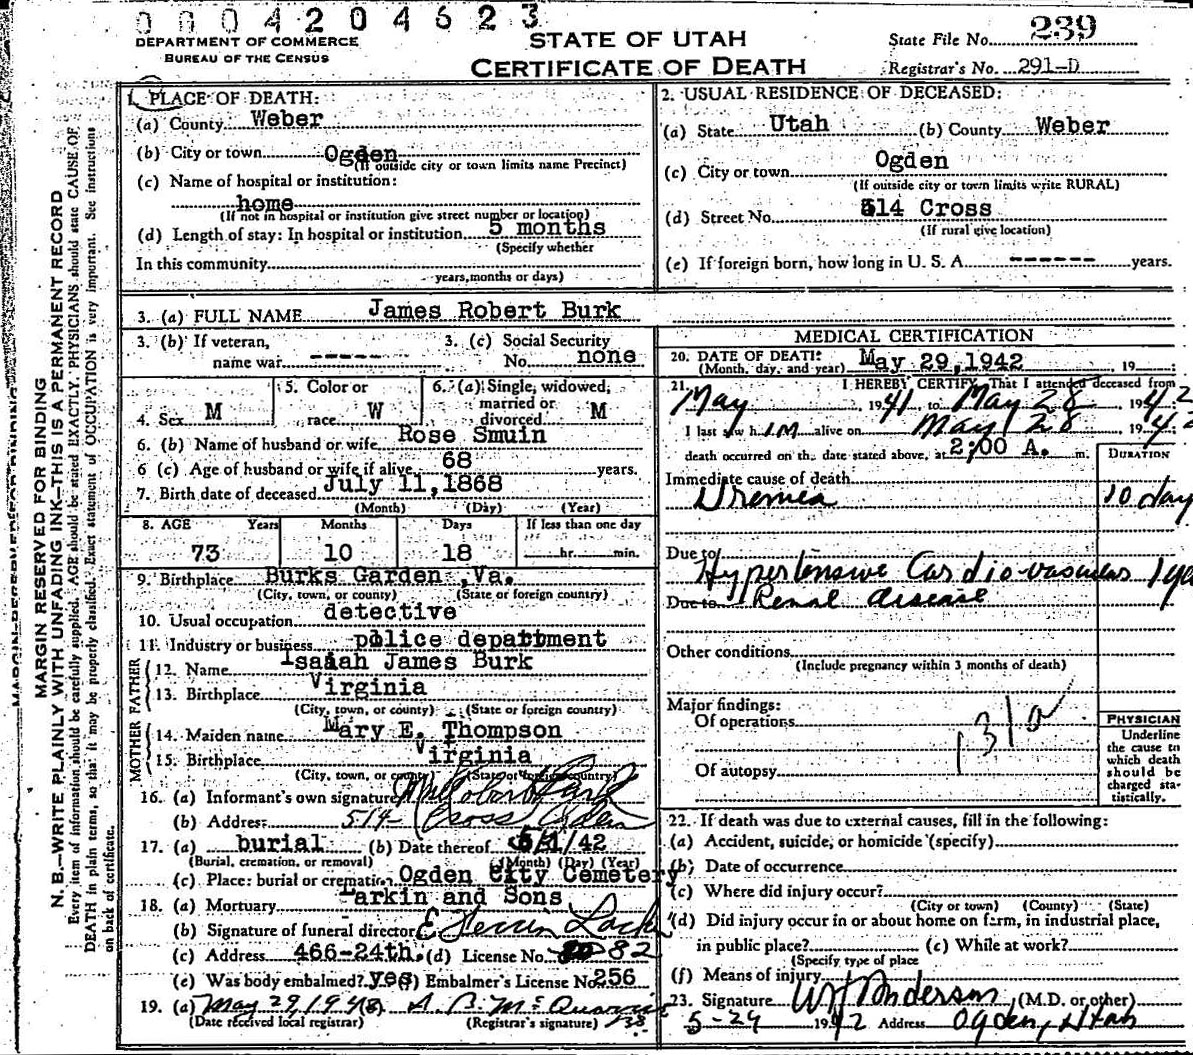 0004204623
DEPARTMENT OF COMMERCE
BUREAU OF THE CENSUS
STATE OF UTAH
CERTIFICATE OF DEATH
State File No. 239
Registrar's No. 291-D
MARGIN RESERVED FOR BINDING
N. B.—WRITE PLAINLY WITH UNFADING INK—THIS IS A PERMANENT RECORD
Every item of information should be carefully supplied. AGE should be stated EXACTLY. PHYSICIANS should state CAUSE OF
DEATH in plain terms, so that it may be properly classified. Exact statement of OCCUPATION is very important. See instructions
on back of certificate.
1. PLACE OF DEATH:
(a) County Weber
(b) City or town Ogden
(If outside city or town limits name Precinct)
(c) Name of hospital or institution:
home
(If not in hospital or institution give street number or location)
(d) Length of stay: In hospital or institution 5 months
(Specify whether
In this community
years, months or days)
2. USUAL RESIDENCE OF DECEASED:
(a) State Utah (b) County Weber
(c) City or town Ogden
(If outside city or town limits write RURAL)
(d) Street No. 514 Cross
(If rural give location)
(e) If foreign born, how long in U. S. A. ------ years.
3. (a) FULL NAME James Robert Burk
3. (b) If veteran, name war ------
3. (c) Social Security No. none
4. Sex M
5. Color or race W
6. (a) Single, widowed, married or divorced M
6. (b) Name of husband or wife Rose Smuin
6 (c) Age of husband or wife if alive 68 years.
7. Birth date of deceased July 11, 1868
(Month) (Day) (Year)
8. AGE Years Months Days If less than one day
73 10 18 hr. min.
9. Birthplace Burks Garden, Va.
(City, town, or county) (State or foreign country)
10. Usual occupation detective
11. Industry or business police department
FATHER
12. Name Isaiah James Burk
13. Birthplace Virginia
(City, town, or county) (State or foreign country)
MOTHER
14. Maiden name Mary E. Thompson
15. Birthplace Virginia
(City, town, or county) (State or foreign country)
16. (a) Informant's own signature
(b) Address 514 Cross Ogden
17. (a) burial (b) Date thereof /42
(Burial, cremation, or removal) (Month) (Day) (Year)
(c) Place: burial or cremation Ogden City Cemetery
18. (a) Mortuary Larkin and Sons
(b) Signature of funeral director
(c) Address 466-24th. (d) License No. 82
(e) Was body embalmed? yes (f) Embalmer's License No. 256
19. (a) May 29, 194
(Date received local registrar) (Registrar's signature)
MEDICAL CERTIFICATION
20. DATE OF DEATH: May 29, 1942, 19
(Month, day, and year)
21. I HEREBY CERTIFY, That I attended deceased from
May, 1941, to May 28, 1942
I last saw him alive on May 28, 1942
death occurred on the date stated above, at 2:00 A. m.
DURATION
Immediate cause of death
Uremia 10 day
Due to
Hypertensive Cardio-vascular
Due to Renal disease
Other conditions
(Include pregnancy within 3 months of death)
Major findings:
Of operations
131a
Of autopsy
PHYSICIAN
Underline
the cause to
which death
should be
charged sta-
tistically.
22. If death was due to external causes, fill in the following:
(a) Accident, suicide, or homicide (specify)
(b) Date of occurrence
(c) Where did injury occur?
(City or town) (County) (State)
(d) Did injury occur in or about home on farm, in industrial place,
in public place? (e) While at work?
(Specify type of place
(f) Means of injury
23. Signature W H Anderson, (M.D. or other)
5-29 1942 Address Ogden, Utah